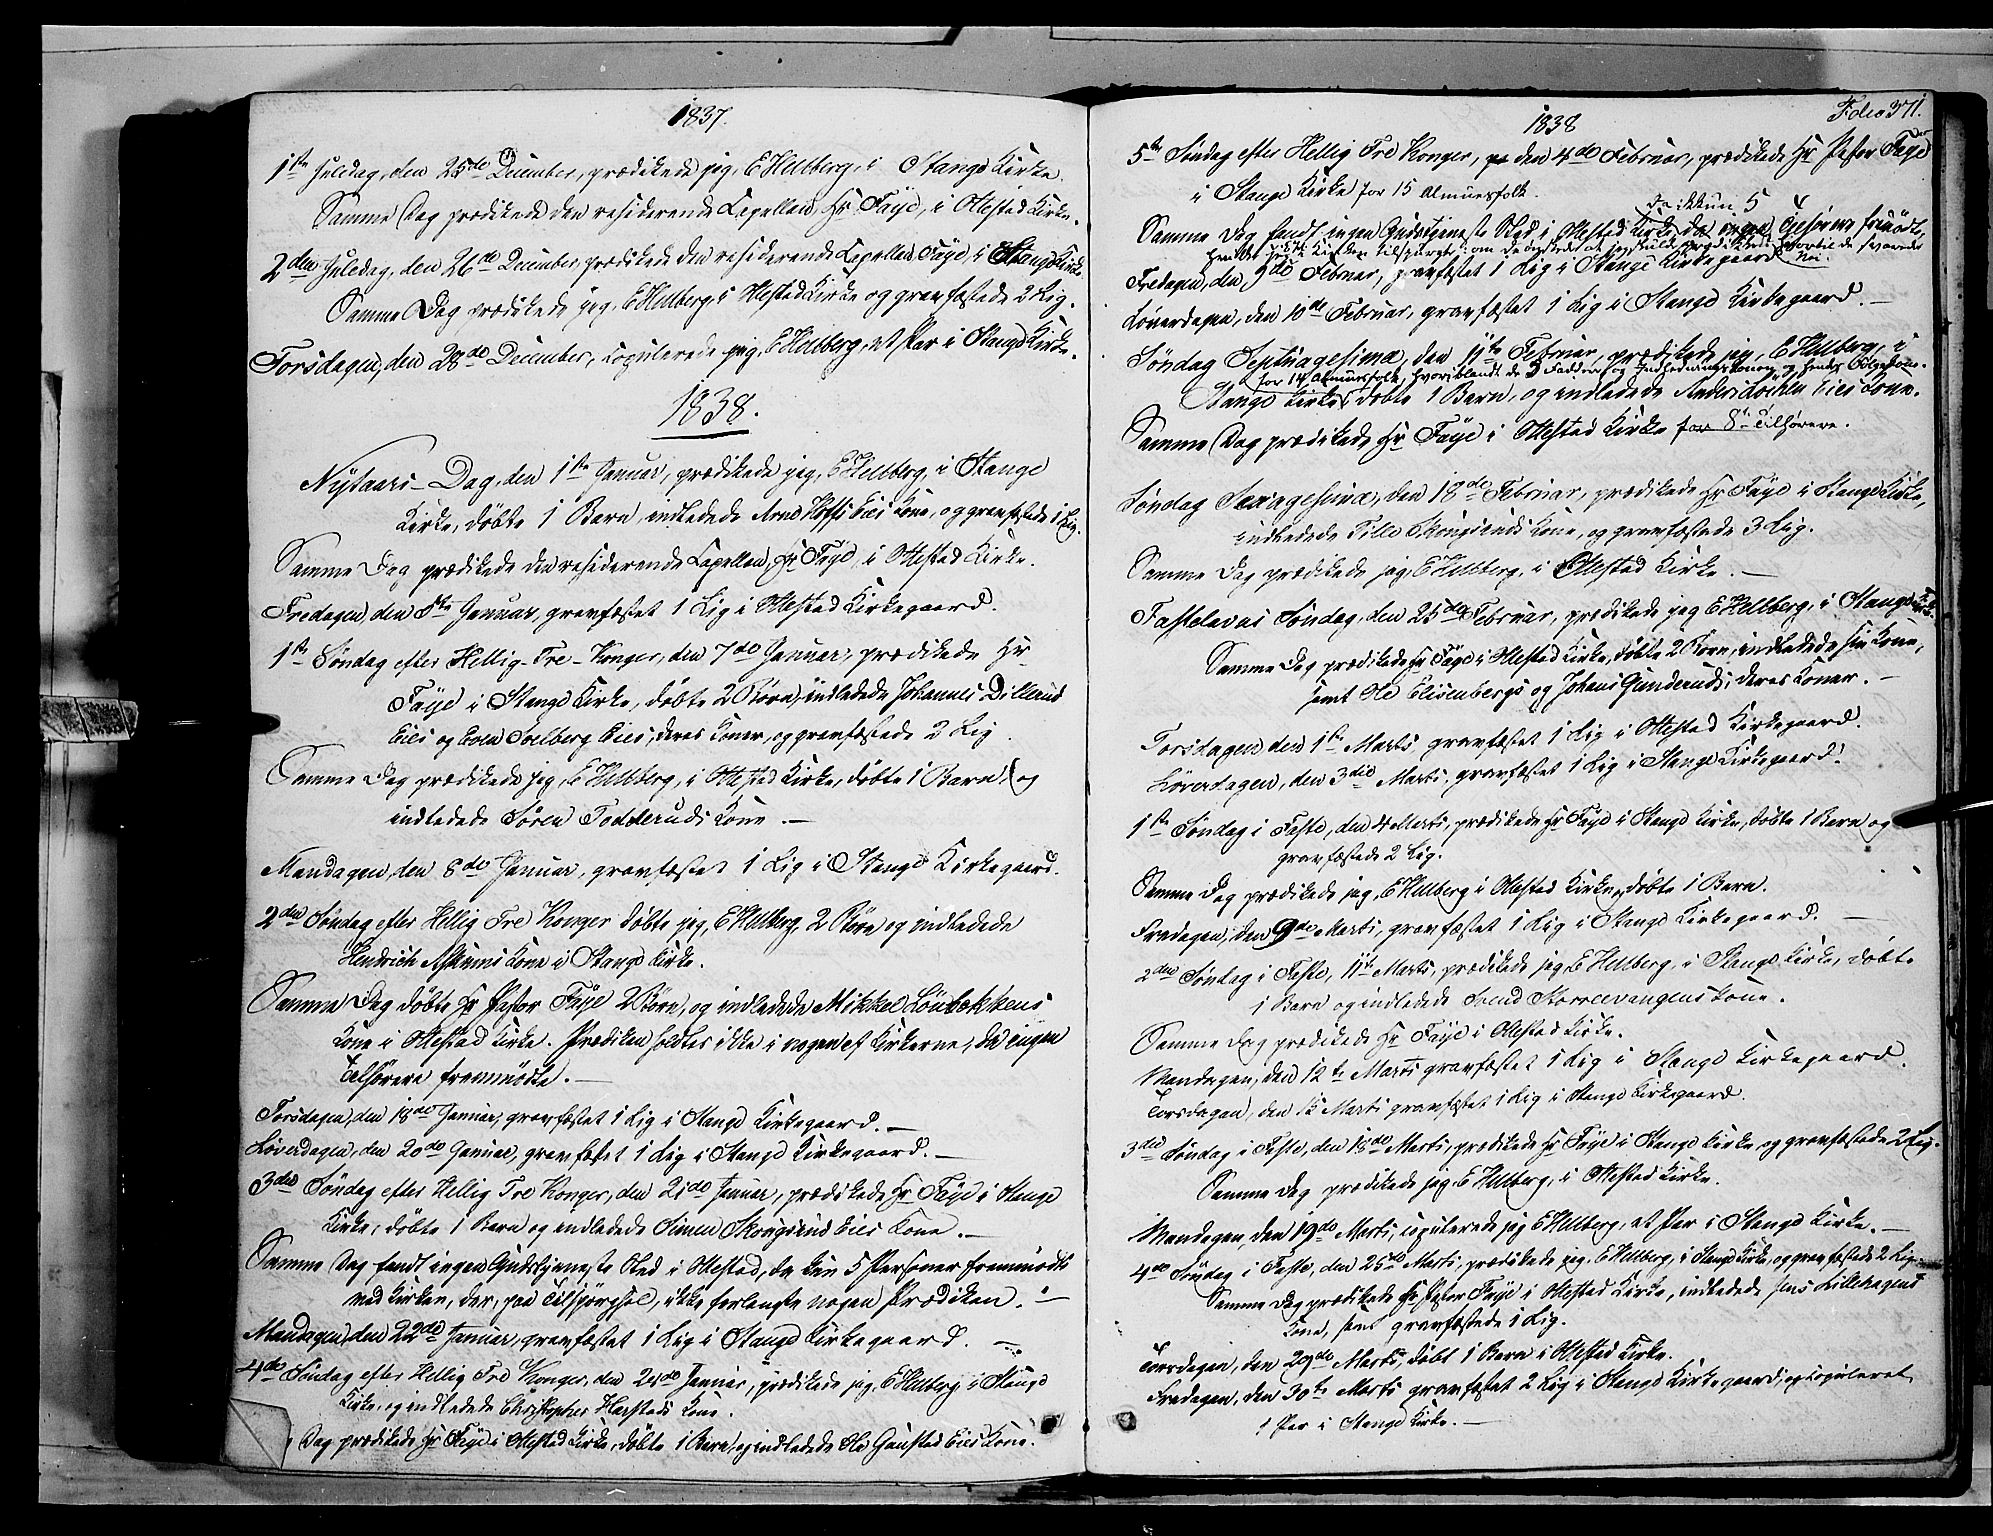 1837.
1ste Juledag, den 25de December, prædikede jeg, E Hellberg, i Stange Kirke.
Samme Dag prædikede den residerende Capellan, Hr Faye, i Ottestad Kirke.
2den Juledag, den 26de December prædikede den residerende Capellan Faye, i Stange Kirke
Samme Dag prædikede jeg, E Hellberg, i Ottestad Kirke og gravfæstede 2 Lig.
Torsdagen, den 28de December, copulerede jeg, E Hellberg, et Par i Stange Kirke.
1838.
Nytaars-Dag, den 1ste Januar, prædikede jeg, E Hellberg, i Stange
Kirke, døbte 1 Barn, indledede Arne Hoffs Eies Kone, og gravfæstede 1 Lig.
Samme Dag prædikede den residerende Capellan, Hr Faye, i Ottestad Kirke.
Fredagen, den 5te Januar, gravfæstet 1 Lig i Ottestad Kirkegaard.
1ste Søndag efter Hellig-Tre-Konger, den 7de Januar, prædikede Hr
Faye i Stange Kirke, døbte 2 Børn, indledede Johannes Dillerud
Eies og Even Solberg Eies, deres Koner, og gravfæstede 2 Lig
Samme Dag prædikede jeg, E Hellberg, i Ottestad Kirke, døbte 1 Barn, og
indledede Søren Todderuds Kone.
Mandagen, den 8de Januar, gravfæstet 1 Lig i Stange Kirkegaard.
2den Søndag efter Hellig Tre Konger døbte jeg, E Hellberg, 2 Børn og indledede
Hendrich Askrims Kone i Stange Kirke.
Samme Dag døbte Hr Pastor Faye 2 Børn, og indledede Mikkel Löubekkens
Kone i Ottestad Kirke. Prædiken holdtes ikke i nogen af Kirkerne, da ingen
Tilhørere fremmødte.
Torsdagen, den 18de Januar, gravfæstet 1 Lig i Stange Kirkegaard.
Løverdagen, den 20de Januar, gravfæstet 1 Lig i Stange Kirkegaard.
3die Søndag efter Hellig Tre Konger, den 21de Januar, prædikede Hr Faye i Stange
Kirke, døbte 1 Barn og indledede Simen Skougsrud Eies Kone.
Samme Dag fandt ingen Gudstjeneste Sted i Ottestad, da kun 5 Personer fremmødte
ved Kirken, der, paa Tilspørgsel, ikke forlangte nogen Prædiken.
Mandagen, den 22de Januar, gravfæstet 1 Lig i Stange Kirkegaard.
4de Søndag efter Hellig Tre Konger, den 28de Januar, prædikede jeg, E Hellberg, i Stange
Kirke, og indledede Christopher Harstads Kone.
Dag prædikede Hr Faye i Ottestad Kirke, døbte 1 Barn, og indledede Ole Gaustad Eies Kone.
1838
Folio 371.
5te Søndag efter Hellig Tre Konger, den 4de Februar, prædikede Hr Pastor Faye
i Stange Kirke for 15 Almuesfolk.
da ikkun 5
Samme Dag fandt ingen Gudstjeneste Sted i Ottestad Kirke, da ingen Tilhørere fremmødte,
om de ønskede at jeg skulde prædike, hvortil de svarede
Nei.
Fredagen, den 9de Februar, gravfæstet 1 Lig i Stange Kirkegaard
Løverdagen, den 10de Februar, gravfæstet 1 Lig i Stange Kirkegaard.
Søndag Septuagesima, den 11te Februar, prædikede jeg, E Hellberg, i
for 14 Almuesfolk, hvoriblandt de 3 Faddere og Indledningskonen og hendes Følgekone.
Stange Kirke, døbte 1 Barn, og indledede Anders Eies Kone.
Samme Dag prædikede Hr Faye i Ottestad Kirke for 8 Tilhørere.
Søndag Sexagesima, den 18de Februar, prædikede Hr Faye i Stange Kirke,
indledede Tille Skougsruds Kone, og gravfæstede 3 Lig.
Samme Dag prædikede jeg, E Hellberg, i Ottestad Kirke.
Fastelavns Søndag, den 25de Februar, prædikede jeg E Hellberg, i Stange Kirke.
Samme Dag prædikede Hr Faye i Ottestad Kirke, døbte 2 Børn, indledede sin Kone,
samt Ole Elisenbergs og Johans Gunderuds, deres Koner.
Torsdagen, den 1ste Marts gravfæstet 1 Lig i Ottestad Kirkegaard.
Løverdagen, den 3die Marts, gravfæstet 1 Lig i Stange Kirkegaard.
1ste Søndag i Faste, den 4 Marts, prædikede Hr Faye i Stange Kirke, døbte 1 Barn og
gravfæstede 2 Lig.
Samme Dag prædikede jeg, E Hellberg i Ottestad Kirke, døbte 1 Barn.
Fredagen, den 9de Marts, gravfæstet 1 Lig i Stange Kirkegaard.
2den Søndag i Faste, 11te Marts, prædikede jeg, E Hellberg, i Stange Kirke, døbte
1 Barn og indledede Svend Storrevangens Kone.
Samme Dag prædikede Hr Faye i Ottestad Kirke.
Mandagen, den 12te Marts gravfæstet 1 Lig i Stange Kirkegaard.
Torsdagen, den 15 Marts gravfæstet 1 Lig i Stange Kirkegaard.
3die Søndag i Faste, den 18de Marts, prædikede Hr Faye i Stange Kirke og gravfæstede 2 Lig.
Samme Dag prædikede jeg, E Hellberg, i Ottestad Kirke.
Mandagen, den 19de Marts, copulerede jeg E Hellberg, et Par i Stange Kirke.
4de Søndag i Faste, den 25de Marts, prædikede jeg, E Hellberg, i Stange Kirke, og gravfæstede 2 Lig.
Samme Dag prædikede Hr Pastor Faye i Ottestad Kirke, indledede Jens Lillehagens
Kone, samt gravfæstede 1 Lig.
Torsdagen, den 29de Marts, døbt 1 Barn i Ottestad Kirke.
Fredagen, den 30te Marts gravfæstet 2 Lig i Stange Kirkegaard, og copuleret
1 Par i Stange Kirke.